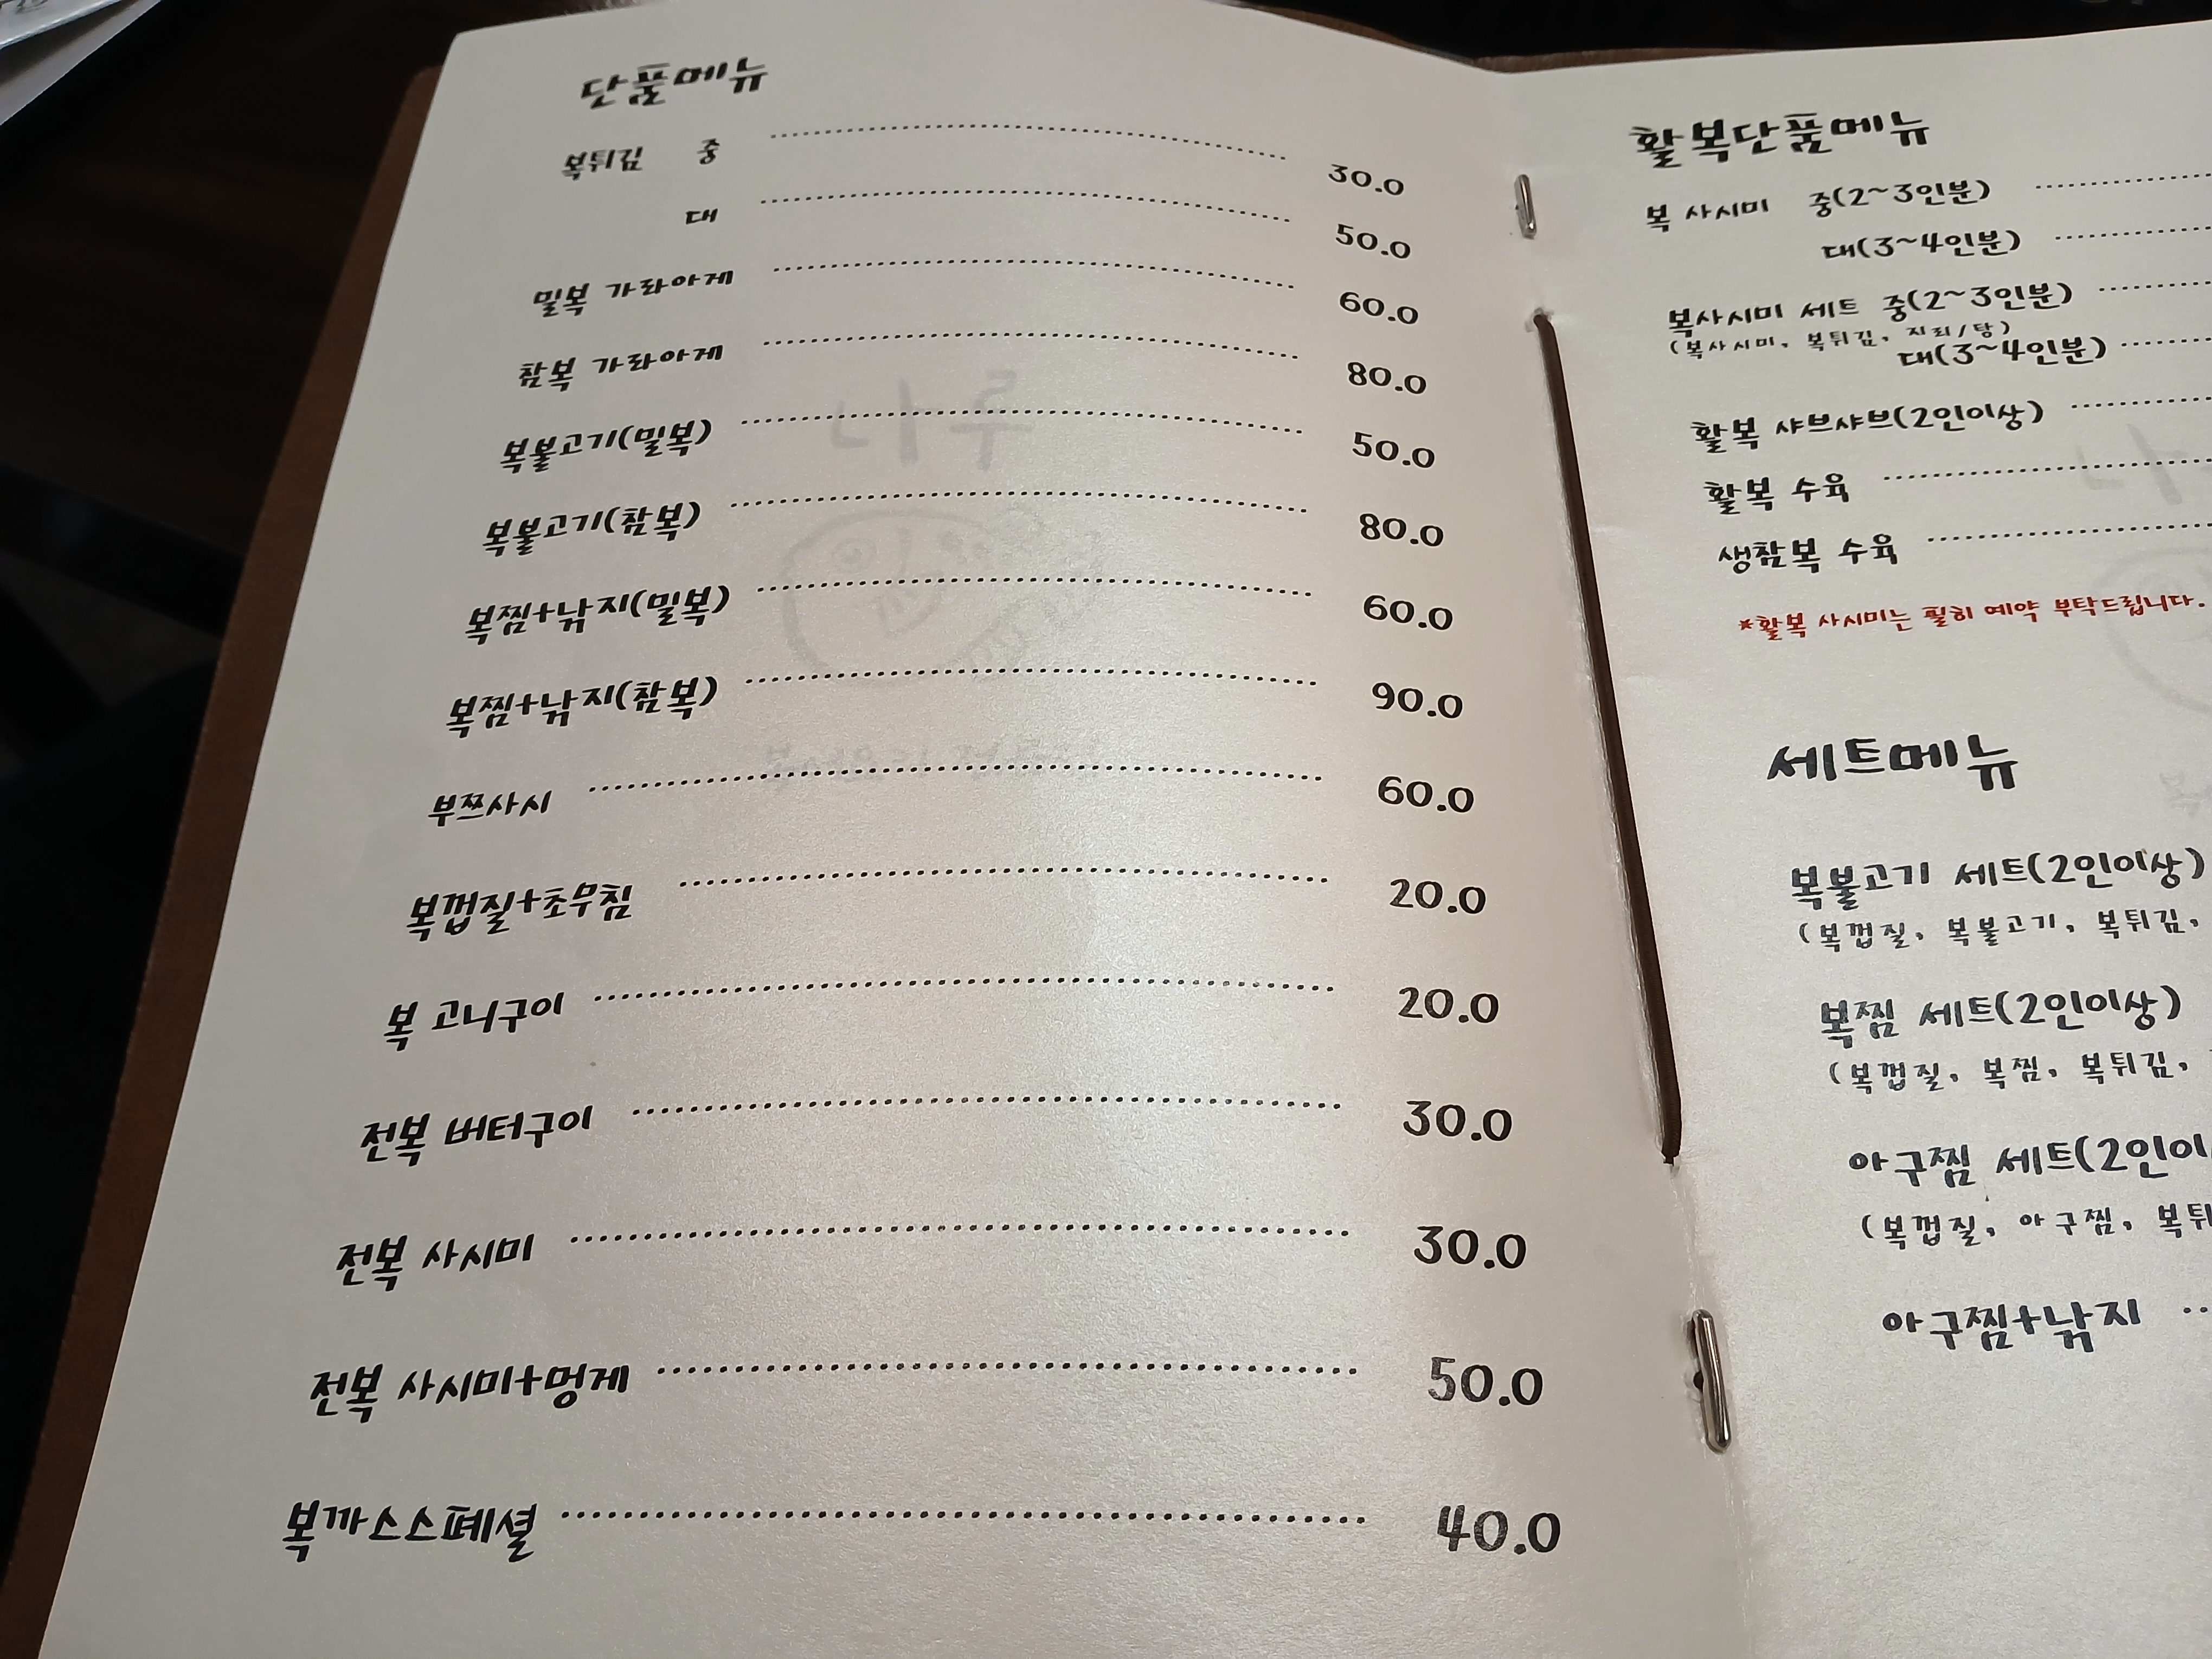 단품메뉴
복튀김 중 30.0
대 50.0
밀복 가라아게 60.0
참복 가라아게 80.0
복불고기(밀복) 50.0
복불고기(참복) 80.0
복찜+낚지(밀복) 60.0
복찜+낚지(참복) 90.0
부쯔사시 60.0
복껍질+초무침 20.0
복 고니구이 20.0
전복 버터구이 30.0
전복 사시미 30.0
전복 사시미+멍게 50.0
복까스스페셜 40.0
활복단품메뉴
복 사시미 중(2~3인분)
대(3~4인분)
복사시미 세트 중(2~3인분)
(복사시미, 복튀김, 지리/탕)
대(3~4인분)
활복 샤브샤브(2인이상)
활복 수육
생참복 수육
*활복 사시미는 필히 예약 부탁드립니다.
세트메뉴
복불고기 세트(2인이상)
(복껍질, 복불고기, 복튀김,
복찜 세트(2인이상)
(복껍질, 복찜, 복튀김,
아구찜 세트(2인이
(복껍질, 아구찜, 복튀
아구찜+낚지